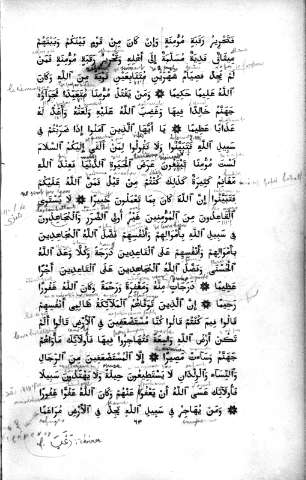 فَتَحْرِيرُ رَقَبَةٍ مُؤْمِنَةٍ وَإِنْ كَانَ مِنْ قَوْمٍ بَيْنَكُمْ وَبَيْنَهُمْ
مِيثَاقٌ فَدِيَةٌ مُسَلَّمَةٌ إِلَى أَهْلِهِ وَتَحْرِيرُ رَقَبَةٍ مُؤْمِنَةٍ فَمَنْ
لَمْ يَجِدْ فَصِيَامُ شَهْرَيْنِ مُتَتَابِعَيْنِ تَوْبَةً مِنَ اللَّهِ وَكَانَ
اللَّهُ عَلِيمًا حَكِيمًا ✽ وَمَنْ يَقْتُلْ مُؤْمِنًا مُتَعَمِّدًا فَجَزَاؤُهُ
جَهَنَّمُ خَالِدًا فِيهَا وَغَضِبَ اللَّهُ عَلَيْهِ وَلَعَنَهُ وَأَعَدَّ لَهُ
عَذَابًا عَظِيمًا ✽ يَا أَيُّهَا الَّذِينَ آمَنُوا إِذَا ضَرَبْتُمْ فِي
سَبِيلِ اللَّهِ فَتَبَيَّنُوا وَلَا تَقُولُوا لِمَنْ أَلْقَى إِلَيْكُمُ السَّلَامَ
لَسْتَ مُؤْمِنًا تَبْتَغُونَ عَرَضَ الْحَيَوةِ الدُّنْيَا فَعِنْدَ اللَّهِ
مَغَانِمُ كَثِيرَةٌ كَذَلِكَ كُنْتُمْ مِنْ قَبْلُ فَمَنَّ اللَّهُ عَلَيْكُمْ
فَتَبَيَّنُوا إِنَّ اللَّهَ كَانَ بِمَا تَعْمَلُونَ خَبِيرًا ✽ لَا يَسْتَوِي
الْقَاعِدُونَ مِنَ الْمُؤْمِنِينَ غَيْرُ أُولِي الضَّرَرِ وَالْمُجَاهِدُونَ
فِي سَبِيلِ اللَّهِ بِأَمْوَالِهِمْ وَأَنْفُسِهِمْ فَضَّلَ اللَّهُ الْمُجَاهِدِينَ
بِأَمْوَالِهِمْ وَأَنْفُسِهِمْ عَلَى الْقَاعِدِينَ دَرَجَةً وَكُلًّا وَعَدَ اللَّهُ
الْحُسْنَى وَفَضَّلَ اللَّهُ الْمُجَاهِدِينَ عَلَى الْقَاعِدِينَ أَجْرًا
عَظِيمًا ✽ دَرَجَاتٍ مِنْهُ وَمَغْفِرَةً وَرَحْمَةً وَكَانَ اللَّهُ غَفُورًا
رَحِيمًا ✽ إِنَّ الَّذِينَ تَوَفَّاهُمُ الْمَلَائِكَةُ ظَالِمِي أَنْفُسِهِمْ
قَالُوا فِيمَ كُنْتُمْ قَالُوا كُنَّا مُسْتَضْعَفِينَ فِي الْأَرْضِ قَالُوا أَلَمْ
تَكُنْ أَرْضُ اللَّهِ وَاسِعَةً فَتُهَاجِرُوا فِيهَا فَأُولَائِكَ مَأْوَاهُمْ
جَهَنَّمُ وَسَاءَتْ مَصِيرًا ✽ إِلَّا الْمُسْتَضْعَفِينَ مِنَ الرِّجَالِ
وَالنِّسَاءِ وَالْوِلْدَانِ لَا يَسْتَطِيعُونَ حِيلَةً وَلَا يَهْتَدُونَ سَبِيلًا
فَأُولَائِكَ عَسَى اللَّهُ أَنْ يَعْفُوَ عَنْهُمْ وَكَانَ اللَّهُ عَفُوًّا غَفُورًا
✽ وَمَنْ يُهَاجِرْ فِي سَبِيلِ اللَّهِ يَجِدْ فِي الْأَرْضِ مُرَاغَمًا
٦٣